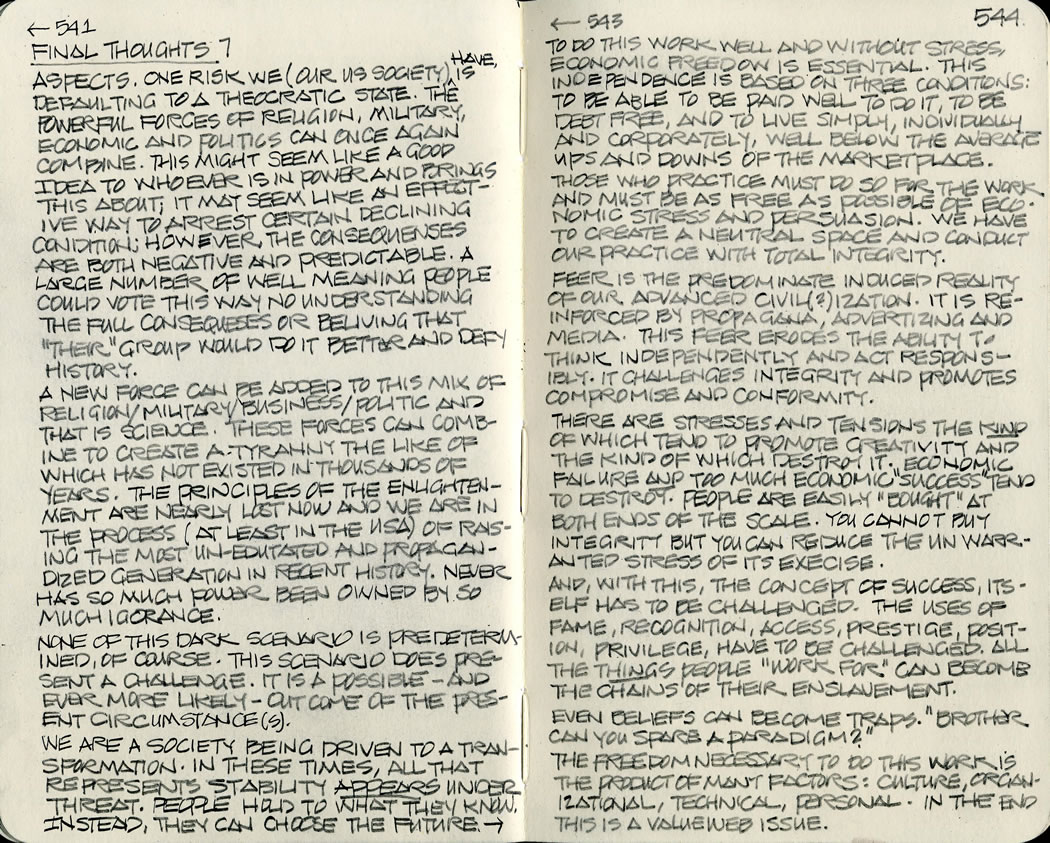 ← 541
FINAL THOUGHTS 7
HAVE,
ASPECTS. ONE RISK WE (OUR US SOCIETY), IS
DEFAULTING TO A THEOCRATIC STATE. THE
POWERFUL FORCES OF RELIGION, MILITARY,
ECONOMIC AND POLITICS CAN ONCE AGAIN
COMBINE. THIS MIGHT SEEM LIKE A GOOD
IDEA TO WHO EVER IS IN POWER AND BRINGS
THIS ABOUT; IT MAY SEEM LIKE AN EFFECT-
IVE WAY TO ARREST CERTAIN DECLINING
CONDITION; HOWEVER, THE CONSEQUENSES
ARE BOTH NEGATIVE AND PREDICTABLE. A
LARGE NUMBER OF WELL MEANING PEOPLE
COULD VOTE THIS WAY NO UNDERSTANDING
THE FULL CONSEQUESES OR BELIVING THAT
"THEIR" GROUP WOULD DO IT BETTER AND DEFY
HISTORY.
A NEW FORCE CAN BE ADDED TO THIS MIX OF
RELIGION/MILITARY/BUSINESS/POLITIC AND
THAT IS SCIENCE. THESE FORCES CAN COMB-
INE TO CREATE A TYRANNY THE LIKE OF
WHICH HAS NOT EXISTED IN THOUSANDS OF
YEARS. THE PRINCIPLES OF THE ENLIGHTEN-
MENT ARE NEARLY LOST NOW AND WE ARE IN
THE PROCESS (AT LEAST IN THE USA) OF RAIS-
ING THE MOST UN-EDUTATED AND PROPAGAN-
DIZED GENERATION IN RECENT HISTORY. NEVER
HAS SO MUCH POWER BEEN OWNED BY SO
MUCH IGORANCE.
NONE OF THIS DARK SCENARIO IS PREDETERM-
INED, OF COURSE. THIS SCENARIO DOES PRE-
SENT A CHALLENGE. IT IS A POSSIBLE - AND
EVER MORE LIKELY - OUT COME OF THE PRES-
ENT CIRCUMSTANCE(S).
WE ARE A SOCIETY BEING DRIVEN TO A TRAN-
SFORMATION. IN THESE TIMES, ALL THAT
REPRESENTS STABILITY APPEARS UNDER
THREAT. PEOPLE HOLD TO WHAT THEY KNOW.
INSTEAD, THEY CAN CHOOSE THE FUTURE. →
← 543
544.
TO DO THIS WORK WELL AND WITHOUT STRESS,
ECONOMIC FREEDOM IS ESSENTIAL. THIS
INDEPENDENCE IS BASED ON THREE CONDITIONS:
TO BE ABLE TO BE PAID WELL TO DO IT, TO BE
DEBT FREE, AND TO LIVE SIMPLY, INDIVIDUALLY
AND CORPORATELY, WELL BELOW THE AVERAGE
UPS AND DOWNS OF THE MARKETPLACE.
THOSE WHO PRACTICE MUST DO SO FOR THE WORK
AND MUST BE AS FREE AS POSSIBLE OF ECO-
NOMIC STRESS AND PERSUASION. WE HAVE
TO CREATE A NEUTRAL SPACE AND CONDUCT
OUR PRACTICE WITH TOTAL INTEGRITY.
FEER IS THE PREDOMINATE INDUCED REALITY
OF OUR ADVANCED CIVIL(?)IZATION. IT IS RE-
INFORCED BY PROPAGANA, ADVERTIZING AND
MEDIA. THIS FEER ERODES THE ABILITY TO
THINK INDEPENDENTLY AND ACT RESPONS-
IBLY. IT CHALLENGES INTEGRITY AND PROMOTES
COMPROMISE AND CONFORMITY.
THERE ARE STRESSES AND TENSIONS THE KIND
OF WHICH TEND TO PROMOTE CREATIVITY AND
THE KIND OF WHICH DESTROY IT. ECONOMIC
FAILURE AND TOO MUCH ECONOMIC "SUCCESS" TEND
TO DESTROY. PEOPLE ARE EASILY "BOUGHT" AT
BOTH ENDS OF THE SCALE. YOU CANNOT BUY
INTEGRITY BUT YOU CAN REDUCE THE UN WARR-
ANTED STRESS OF ITS EXECISE.
AND, WITH THIS, THE CONCEPT OF SUCCESS, ITS-
ELF HAS TO BE CHALLENGED. THE USES OF
FAME, RECOGNITION, ACCESS, PRESTIGE, POSIT-
ION, PRIVILEGE, HAVE TO BE CHALLENGED. ALL
THE THINGS PEOPLE "WORK FOR" CAN BECOMB
THE CHAINS OF THEIR ENSLAVEMENT.
EVEN BELIEFS CAN BECOME TRAPS. "BROTHER
CAN YOU SPARE A PARADIGM?"
THE FREEDOM NECESSARY TO DO THIS WORK IS
THE PRODUCT OF MANY FACTORS: CULTURE, ORGAN-
IZATIONAL, TECHNICAL, PERSONAL. IN THE END
THIS IS A VALUEWEB ISSUE.